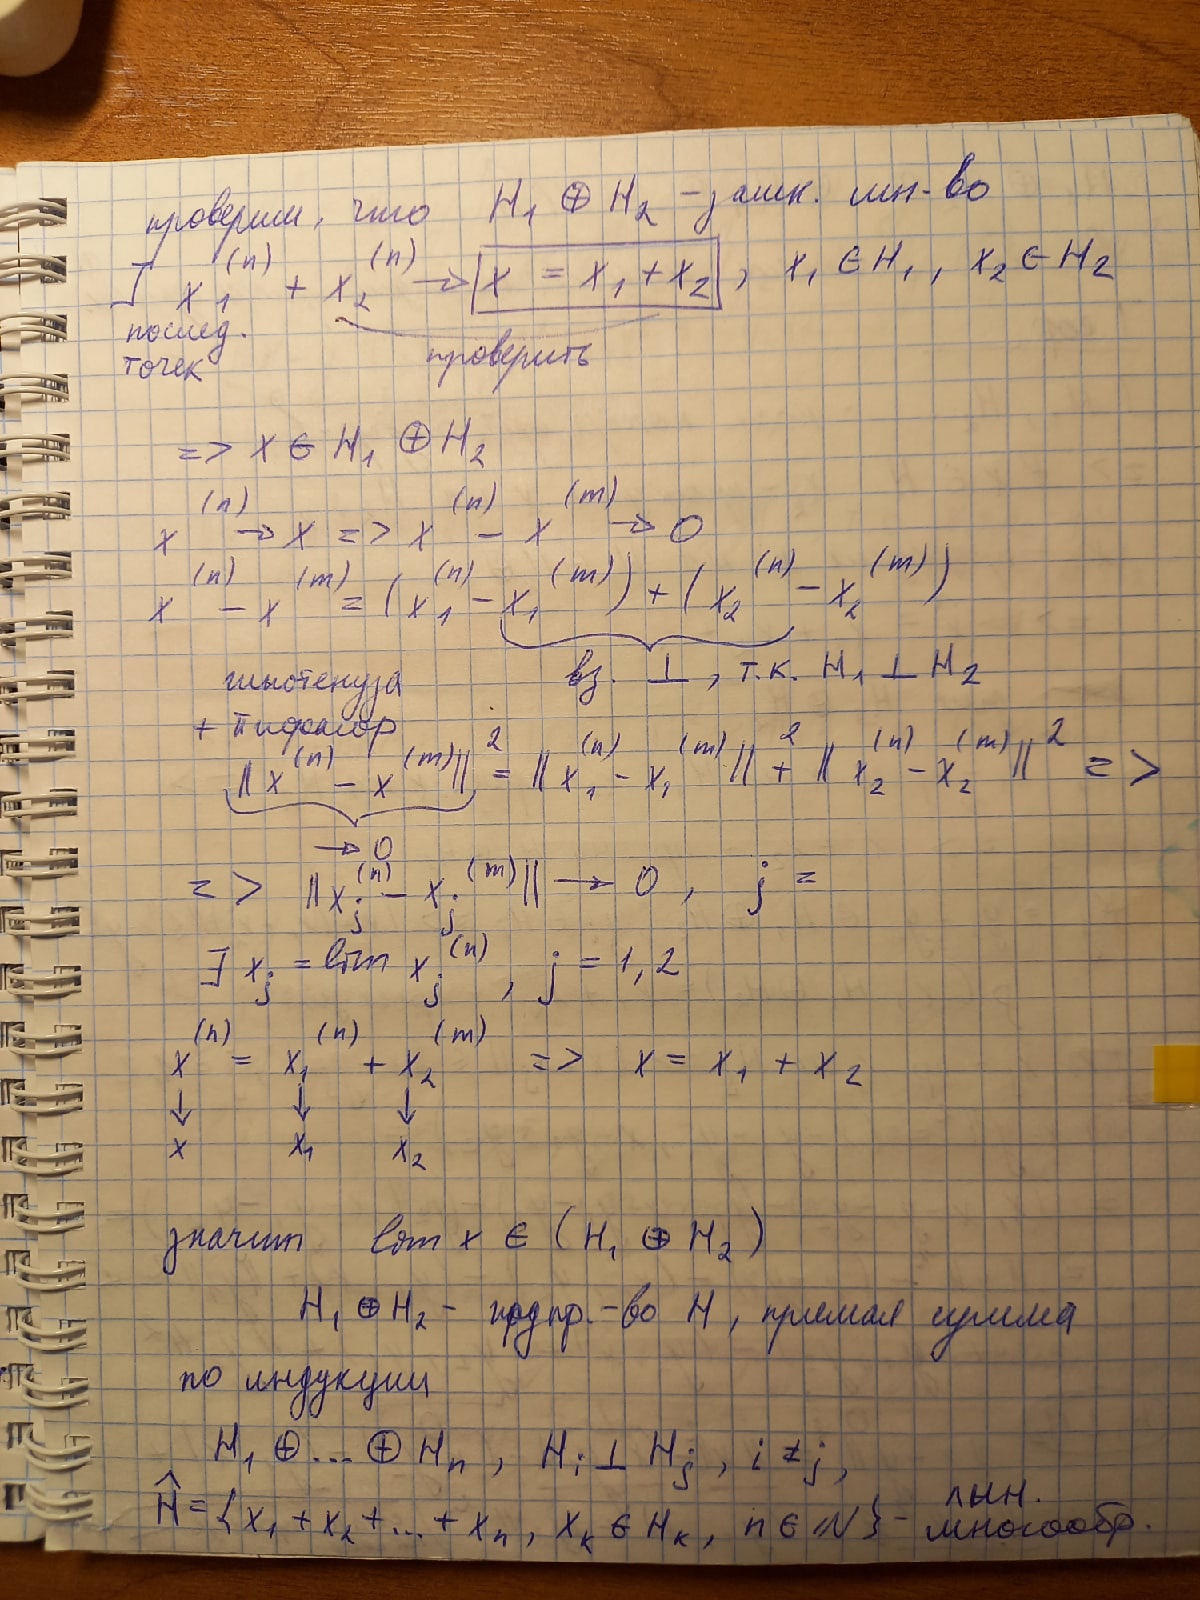 проверим, что H₁ ⊕ H₂ - замк. мн-во
] x₁⁽ⁿ⁾ + x₂⁽ⁿ⁾ → x = x₁ + x₂, x₁ ∈ H₁, x₂ ∈ H₂
послед.
точек
проверить
=> x ∈ H₁ ⊕ H₂
x⁽ⁿ⁾ → x => x⁽ⁿ⁾ - x⁽ᵐ⁾ → 0
x⁽ⁿ⁾ - x⁽ᵐ⁾ = (x₁⁽ⁿ⁾ - x₁⁽ᵐ⁾) + (x₂⁽ⁿ⁾ - x₂⁽ᵐ⁾)
вз. ⊥, т.к. H₁ ⊥ H₂
гипотенуза
+ Пифагор
||x⁽ⁿ⁾ - x⁽ᵐ⁾||² = ||x₁⁽ⁿ⁾ - x₁⁽ᵐ⁾||² + ||x₂⁽ⁿ⁾ - x₂⁽ᵐ⁾||² =>
→ 0
=> ||xⱼ⁽ⁿ⁾ - xⱼ⁽ᵐ⁾|| → 0, j =
∃ xⱼ = lim xⱼ⁽ⁿ⁾, j = 1, 2
x⁽ⁿ⁾ = x₁⁽ⁿ⁾ + x₂⁽ᵐ⁾ => x = x₁ + x₂
↓ ↓ ↓
x x₁ x₂
значит lim x ∈ (H₁ ⊕ H₂)
H₁ ⊕ H₂ - подпр.-во H, прямая сумма
по индукции
H₁ ⊕ ... ⊕ Hₙ, Hᵢ ⊥ Hⱼ, i ≠ j,
Ĥ = {x₁ + x₂ + ... + xₙ, xₖ ∈ Hₖ, n ∈ ℕ} - лин.
многообр.